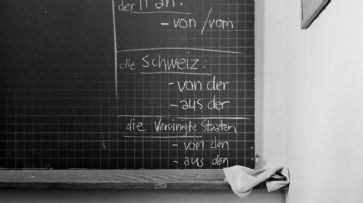 der Iran:
- von/vom
die Schweiz:
- von der
- aus der
die Vereinigte Staaten
- von den
- aus den